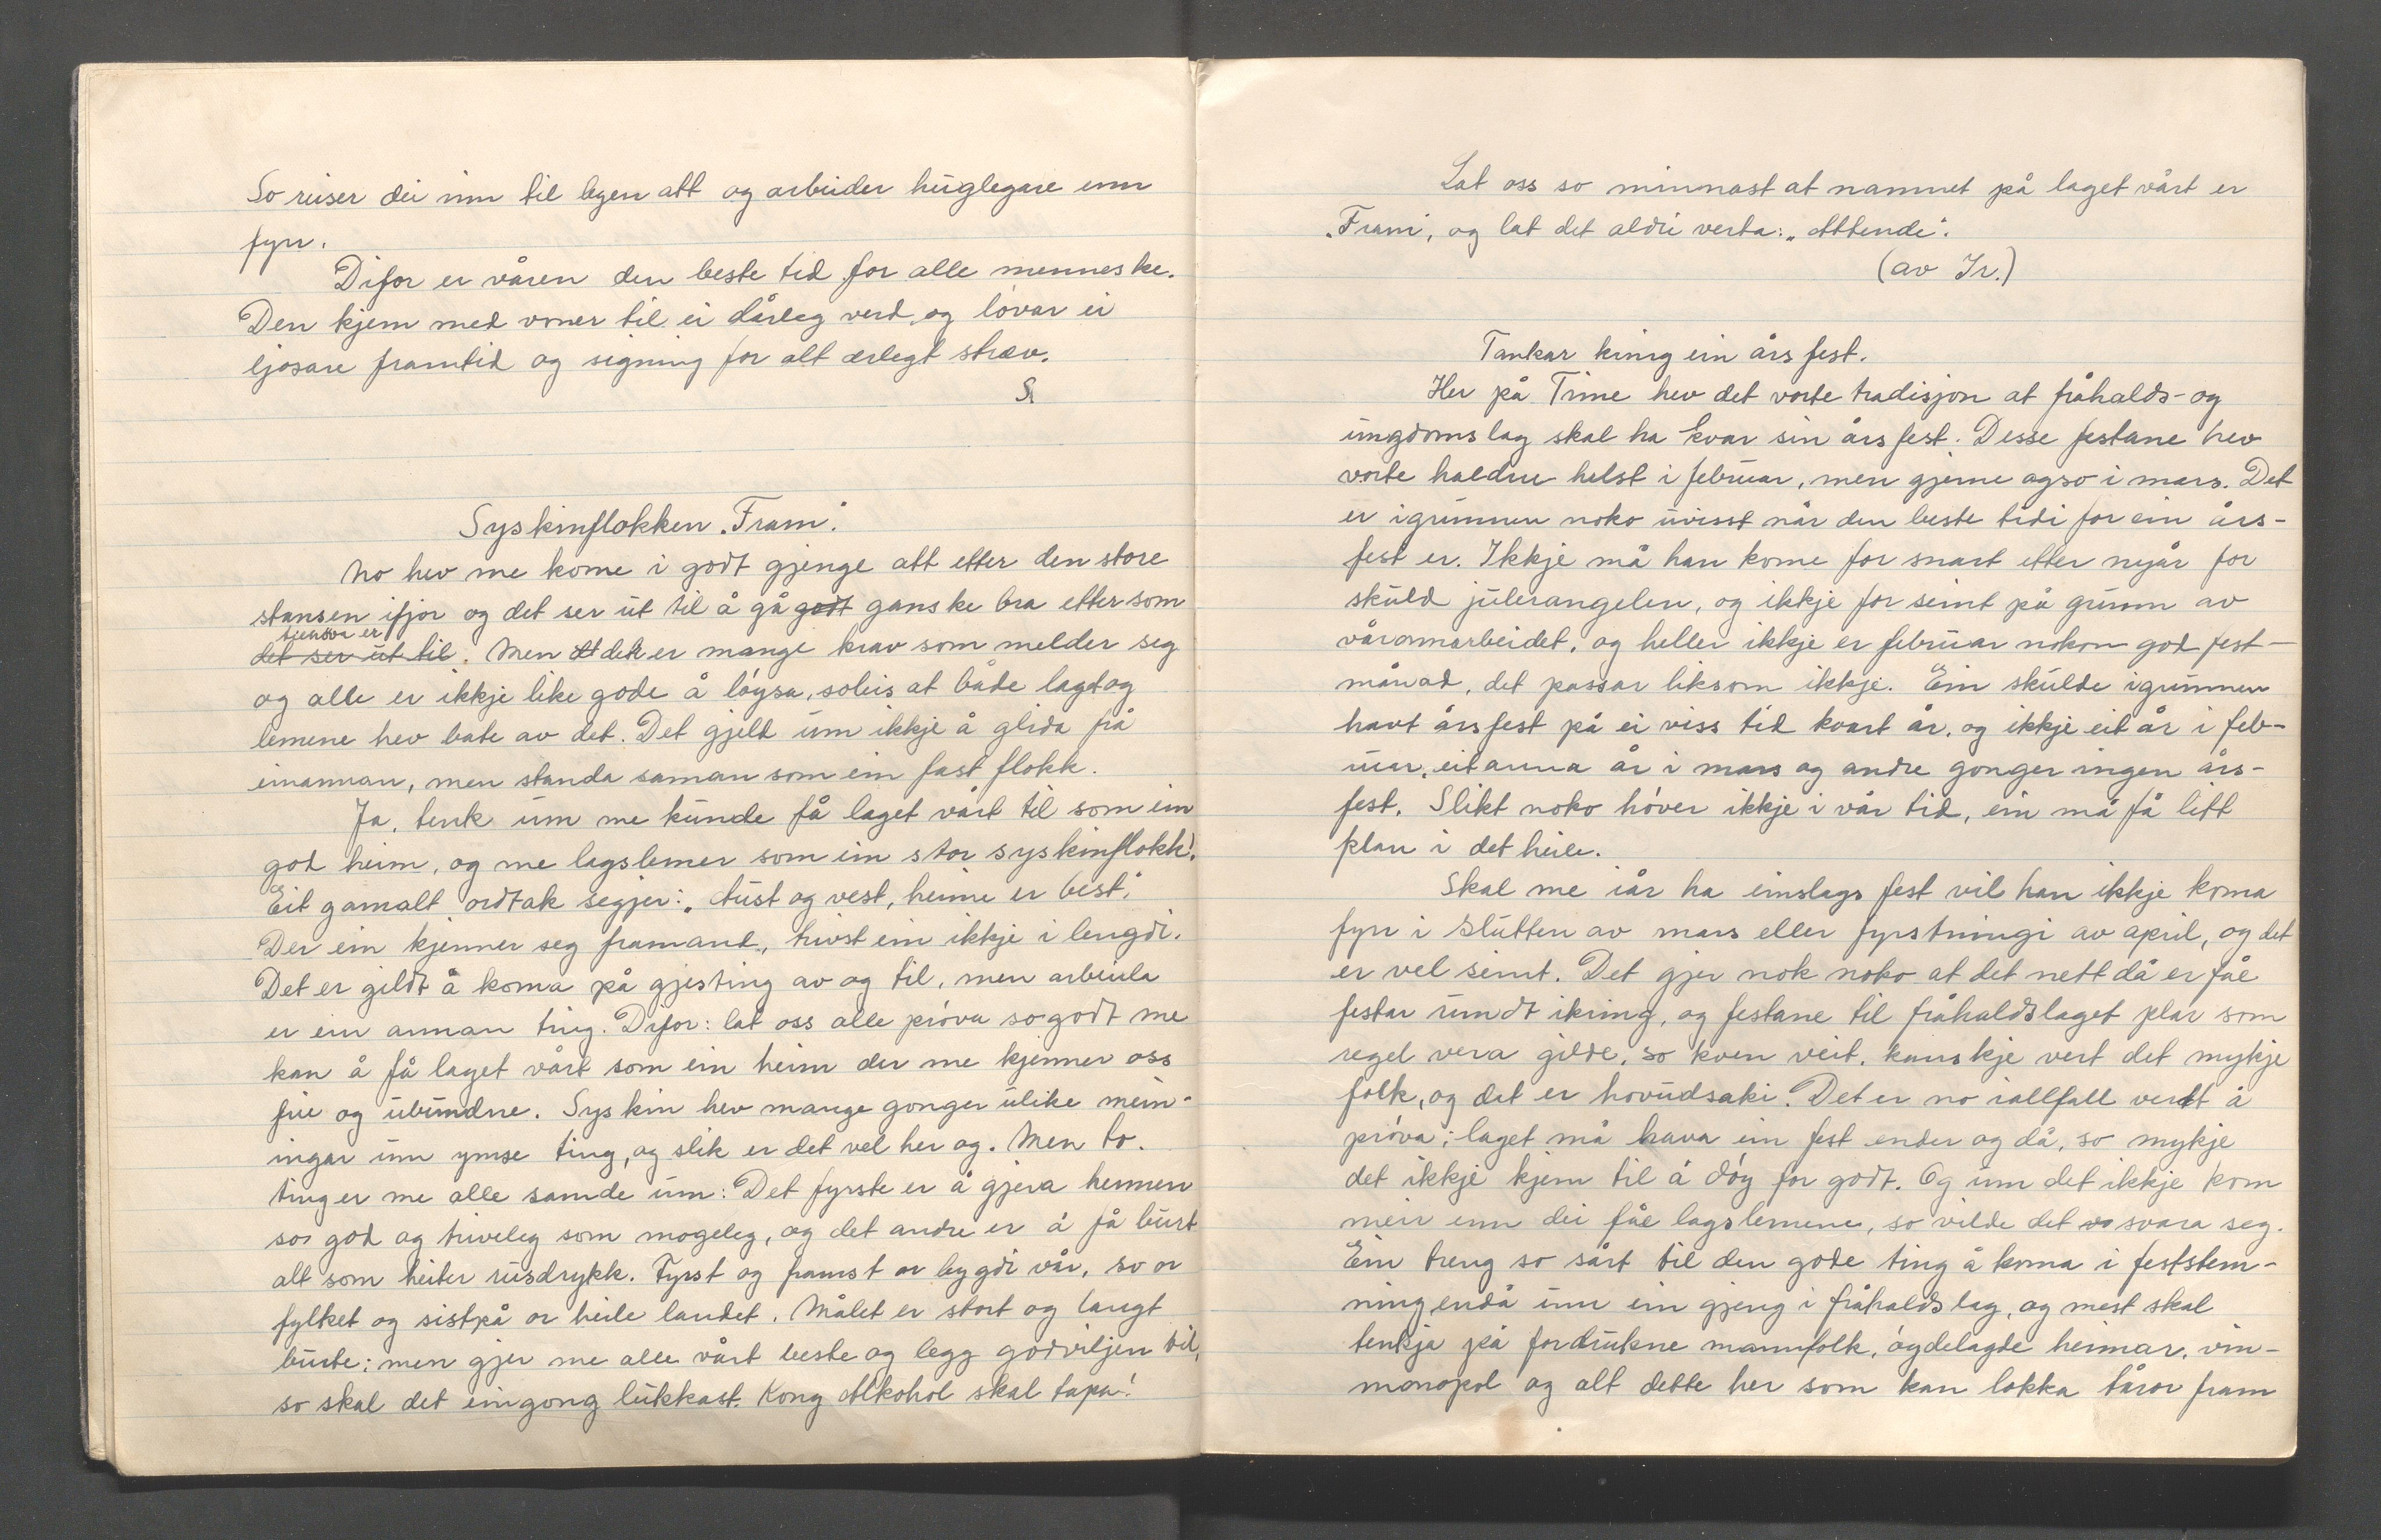 So reiser dei inn til byen att og arbeider huglegare enn
fyrr.
Difor er våren den beste tid for alle menneske.
Den kjem med voner til ei dårleg verd og lovar ei
ljosare framtid og signing for alt ærlegt stræv.
S.
Syskinflokken „Fram".
No hev me kome i godt gjenge att etter den store
stansen ifjor og det ser ut til å gå godt ganske bra etter som
tilhøva er
det ser ut til. Men det er mange krav som melder seg
og alle er ikkje like gode å løysa, soleis at både laget og
lemene hev bate av det. Det gjeld um ikkje å glida frå
einannan, men standa saman som ein fast flokk.
Ja, tenk um me kunde få laget vårt til som ein
god heim, og me lagslemer som ein stor syskinflokk!
Eit gamalt ordtak segjer: „Aust og vest, heime er best".
Der ein kjenner seg framand, trivst ein ikkje i lengdi.
Det er gildt å koma på gjesting av og til, men arbeida
er ein annan ting. Difor: lat oss alle prøva so godt me
kan å få laget vårt som ein heim der me kjenner oss
frie og ubundne. Syskin hev mange gonger ulike mein-
ingar um ymse ting, og slik er det vel her og. Men to
ting er me alle samde um: Det fyrste er å gjera heimen
so god og triveleg som mogeleg, og det andre er å få burt
alt som heiter rusdrykk. Fyrst og framst or bygdi vår, so or
fylket og sist på or heile landet. Målet er stort og langt
burte; men gjer me alle vårt beste og legg godviljen til,
so skal det eingong lukkast. Kong Alkohol skal tapa!
Lat oss so minnast at namnet på laget vårt er
„Fram", og lat det aldri verta: „Attende".
(av Ir.)
Tankar kring ein årsfest.
Her på Time hev det vorte tradisjon at fråhalds- og
ungdomslag skal ha kvar sin årsfest. Desse festane hev
vorte haldne helst i februar, men gjerne ogso i mars. Det
er igrunnen noko uvisst når den beste tidi for ein års-
fest er. Ikkje må han kome for snart etter nyår for
skuld julerangelen, og ikkje for seint på grunn av
våronnarbeidet, og heller ikkje er februar nokon god fest-
månad, det passar liksom ikkje. Ein skulde igrunnen
havt årsfest på ei viss tid kvart år, og ikkje eit år i feb-
ruar, eit anna år i mars og andre gonger ingen års-
fest. Slikt noko høver ikkje i vår tid, ein må få litt
plan i det heile.
Skal me iår ha einslags fest vil han ikkje koma
fyrr i slutten av mars eller fyrstningi av april, og det
er vel seint. Det gjer nok noko at det nett då er fåe
festar rundt ikring, og festane til fråhaldslaget plar som
regel vera gilde, so kven veit, kanskje vert det mykje
folk, og det er hovudsaki. Det er no iallfall verdt å
prøva; laget må hava ein fest ender og då, so mykje
det ikkje kjem til å døy for godt. Og um det ikkje kom
meir enn dei fåe lagslemene, so vilde det svara seg.
Ein treng so sårt til den gode ting å koma i feststem-
ning endå um ein gjeng i fråhaldslag, og mest skal
tenkja på fordrukne mannfolk, øydelagde heimar, vin-
monopol og alt dette her som kan lokka tåror fram